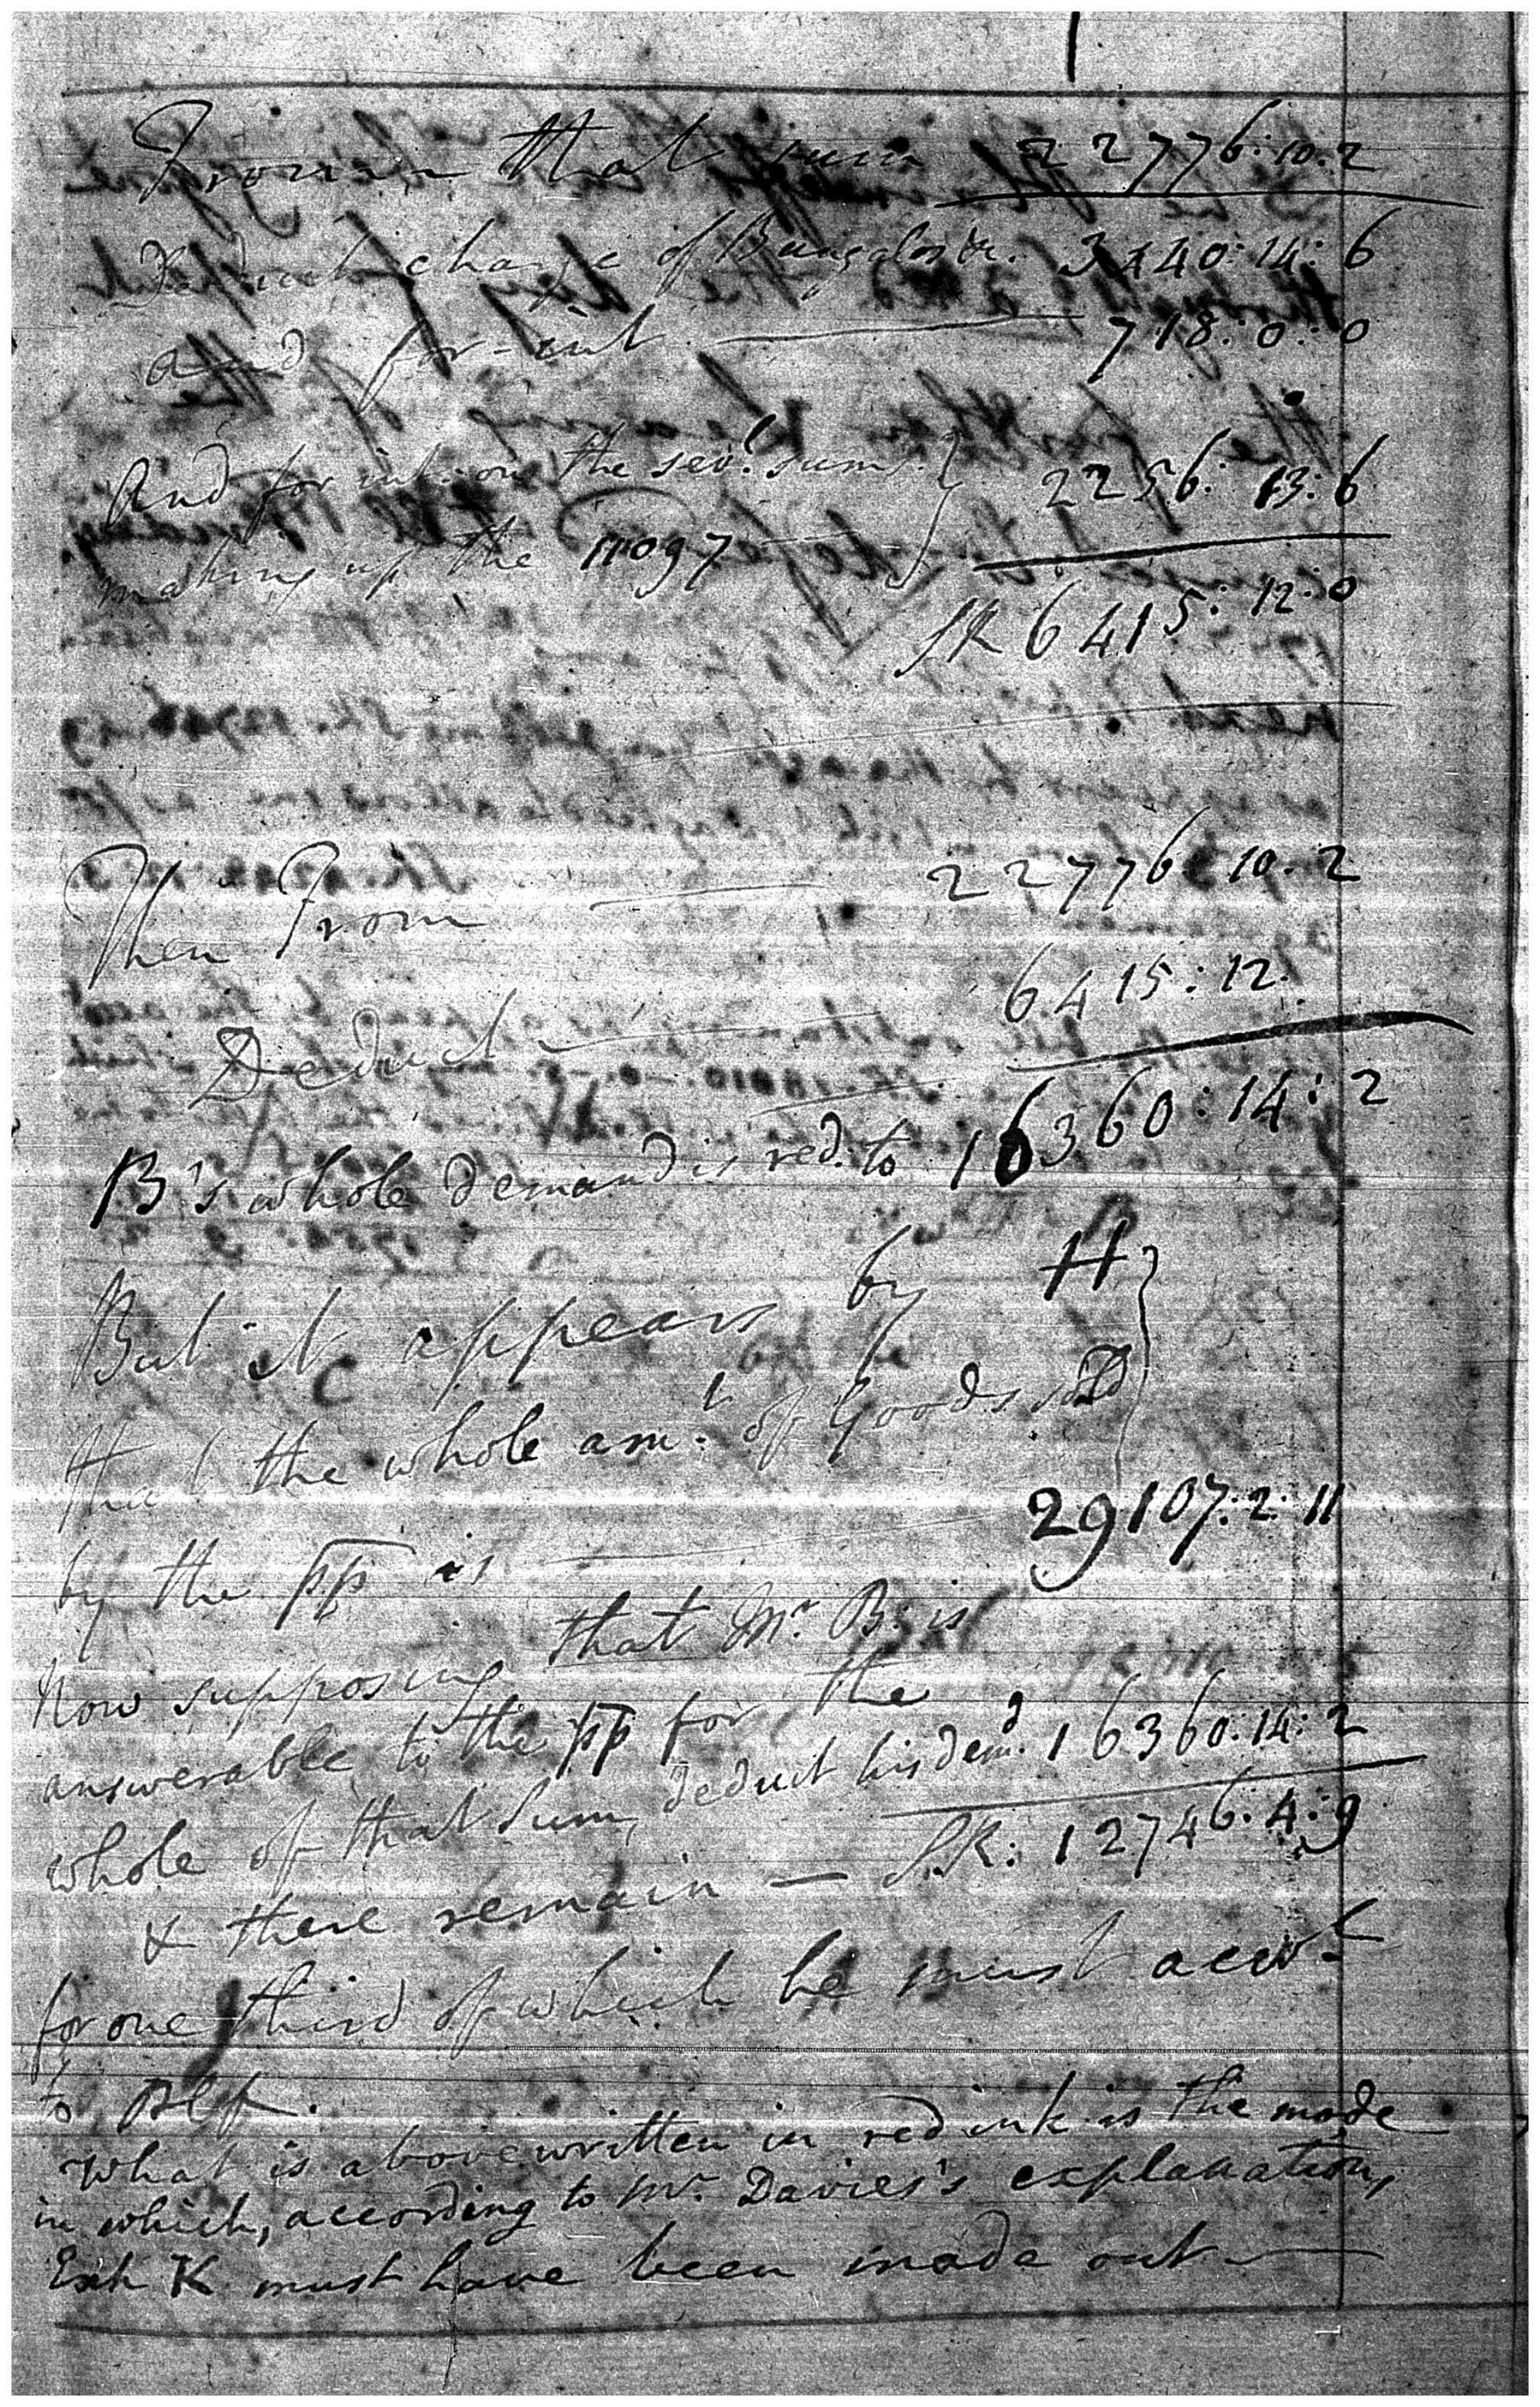 From that sum 22776:10.2
Deduct charge of Bungalo &c. 3440:14:6
and for int 718:0:0
And for int: on the sev.l sums } 2256:13:6
making up the 11097
SR 6415:12:0
Then From 22776:10.2
Deduct 6415:12.
B's whole demand is red. to 16360:14:2
But it appears by A }
C D
that the whole am.t of Goods sold
by the pp is 29107:2:11
Now supposing that Mr. B. is
answerable to the pp for the
whole of that Sum, deduct his dem.d 16360:14:2
& there remain — SR: 12746:4:9
for one third of which he must acco.t
to Plff.
What is above written in red ink is the mode
in which, according to Mr. Davies's explanation,
Exh K must have been made out —